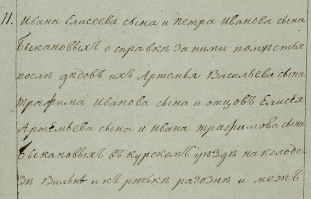 11. Ивана Елисеева сына и петра Иванова сына
быкановыхъ о справке за ними поместья
после дѣдовъ ихъ Артемья Васильева сына
трафима Иванова сына и отцовъ Елисея
Артемьева сына и ивана трафимова сына
быкановыхъ въ курскомъ уезде на колоде-
зе и къ речьки рагозне и межъ